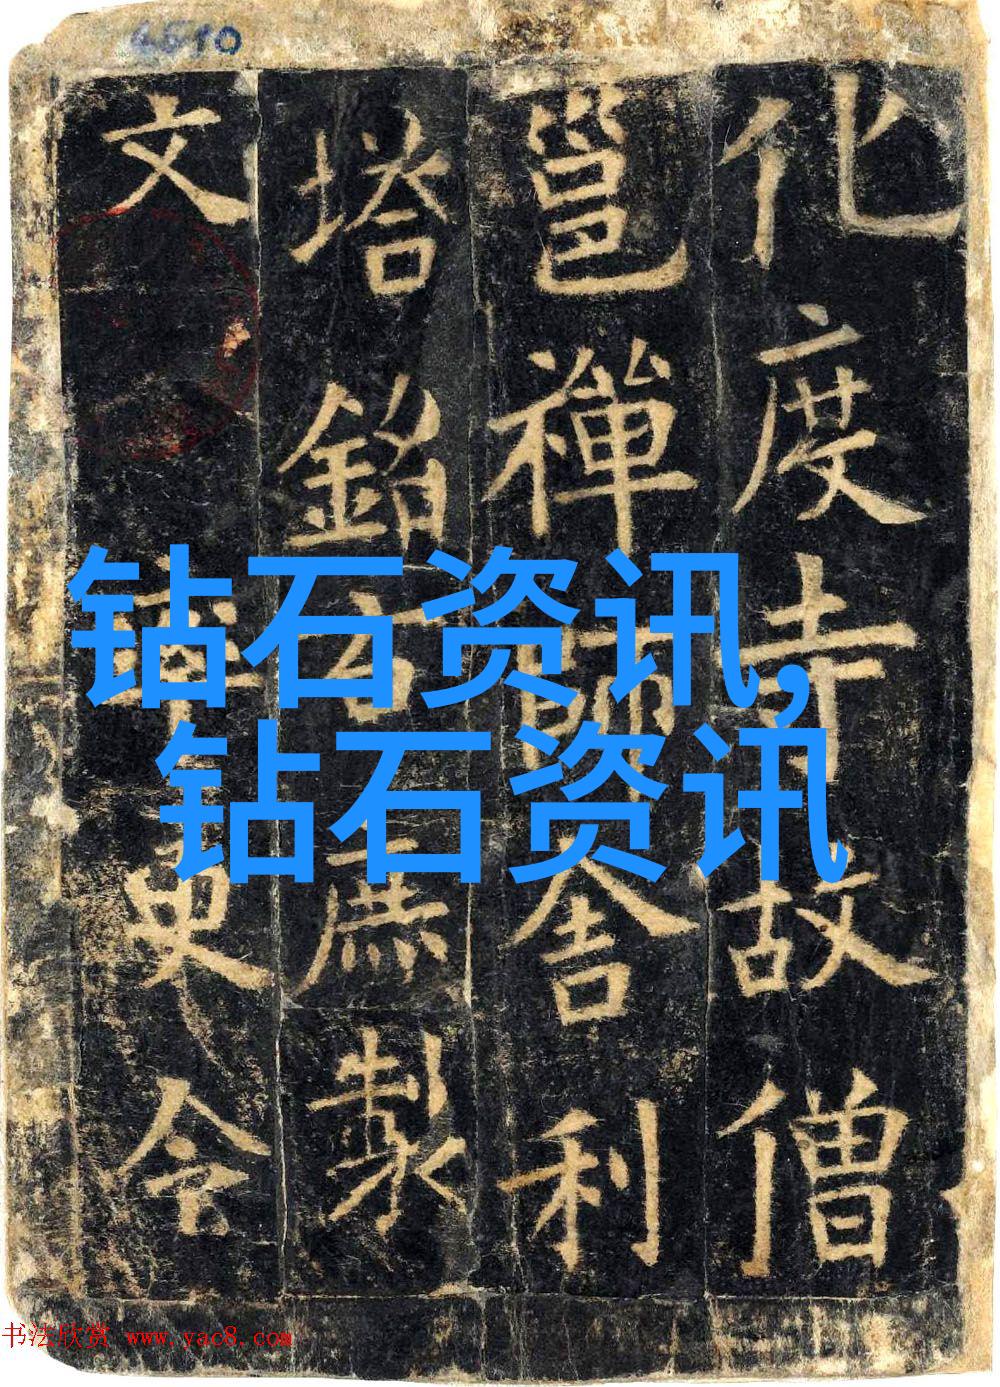 化度寺故僧
邕禪師舍利
塔銘右庶製
文率更令
钻石资讯,
钻石资讯
书法欣赏 www.yac8.com